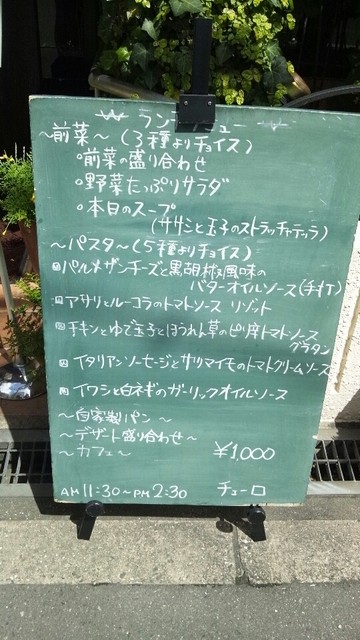 ランチメニュー
～前菜～(3種よりチョイス)
・前菜の盛り合わせ
・野菜たっぷりサラダ
・本日のスープ
(ササミと玉子のストラッチャテッラ)
～パスタ～(5種よりチョイス)
パルメザンチーズと黒胡椒風味の
バターオイルソース(手打)
アサリとルーコラのトマトソース リゾット
チキンとゆで玉子とほうれん草のピリ辛トマトソース
グラタン
イタリアンソーセージとサツマイモのトマトクリームソース
イワシと白ネギのガーリックオイルソース
～自家製パン～
～デザート盛り合わせ～
～カフェ～
¥1,000
AM 11:30～PM 2:30 チューロ